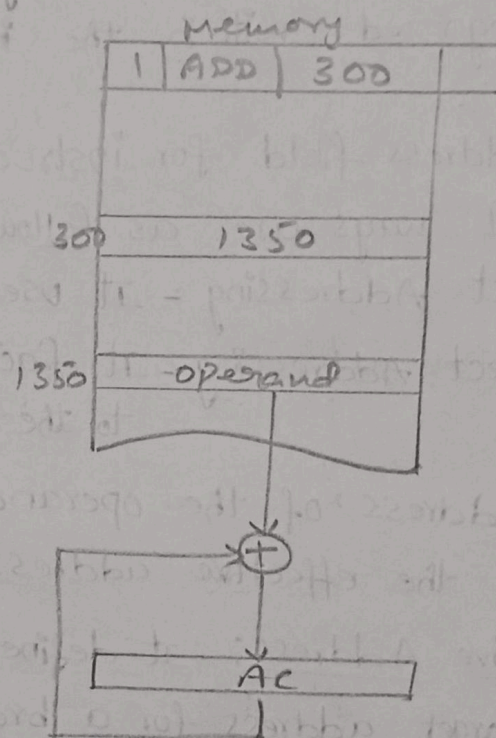 memory
1 ADD 300
300 1350
1350 operand
+
AC